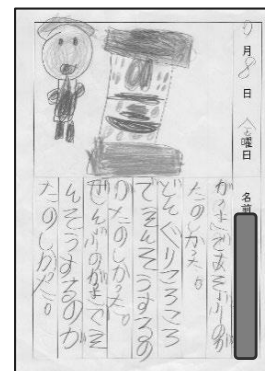 月8日 金曜日 名前
がっきであそぶのが
たのしかった。
どんぐりころころ
てえんそうするの
がたのしかった。
ぜんぶのがっきでえ
んそうするのが
たのしかった。